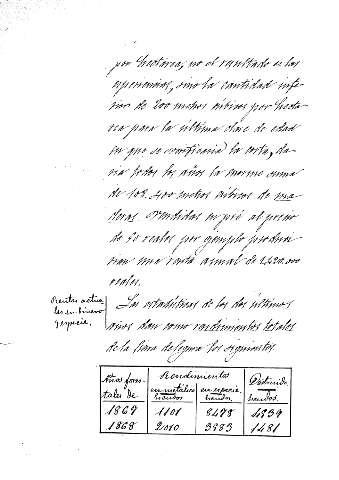 por hectarea, no el resultado de las
esperiencias, sino la cantidad infe-
rior de 200 metros cúbicos por hecta-
rea para la última clase de edad
en que se verificaria la corta, da-
ria todos los años la enorme suma
de 108.400 metros cúbicos de ma-
deras vendidas en pié al precio
de 50 reales por ejemplo produci-
rian una renta anual de
reales.
Rentas actua-
les en dinero
y especie.
Las estadísticas de los dos últimos
años dan como rendimientos totales
de la finca de los siguientes.
Años fores-
tales de
Rendimientos
en metálico
escudos
en especie
escudos.
escudos.
1867 1101 8498 4839
1868 2010 3983 1481